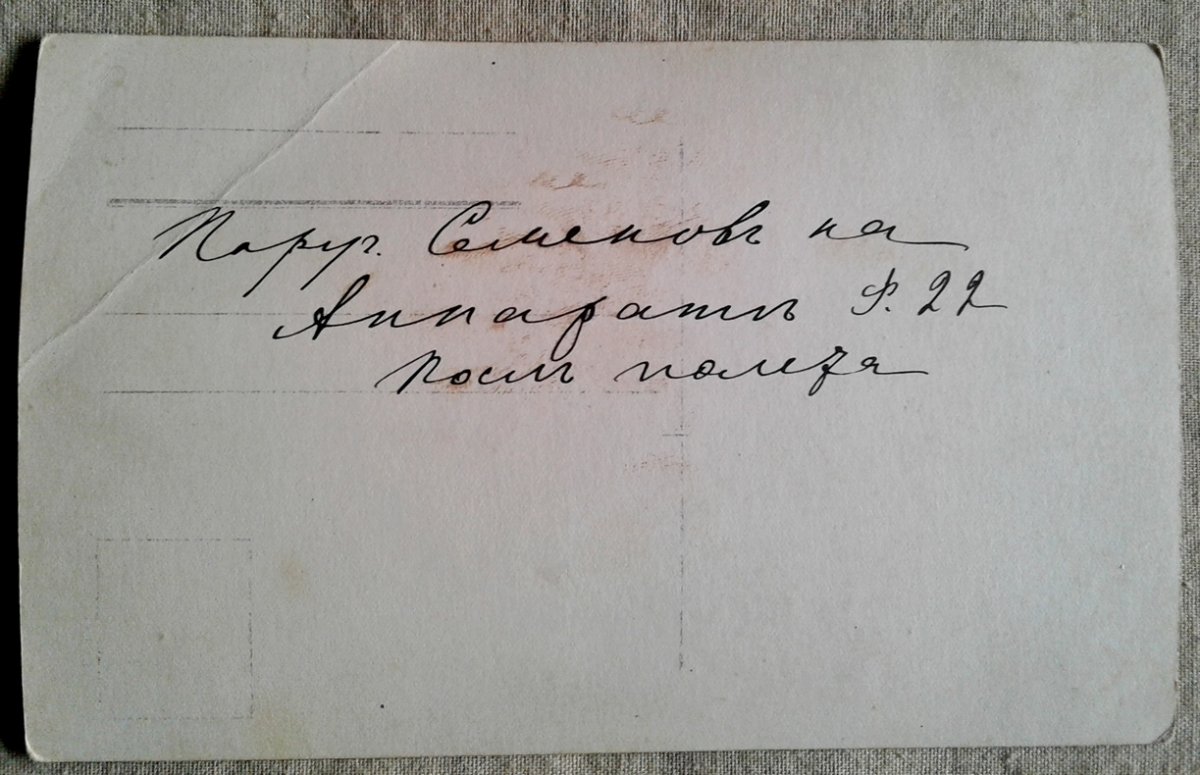 Поруч. Семеновъ на
Аппаратѣ Ф. 22
послѣ полета